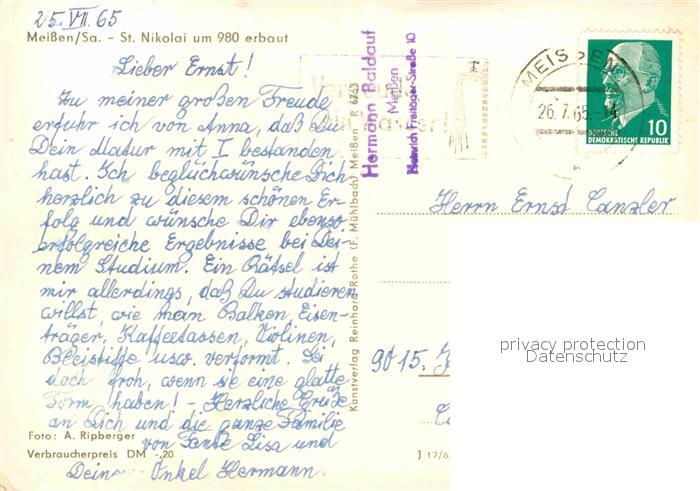 25.VII.65
Meißen/Sa. – St. Nikolai um 980 erbaut
Lieber Ernst!
Zu meiner großen Freude
erfuhr ich von Anna, daß Du
Dein Matur mit I bestanden
hast. Ich beglückwünsche Dich
herzlich zu diesem schönen Er-
folg und wünsche Dir ebenso
erfolgreiche Ergebnisse bei Dei-
nem Studium. Ein Rätsel ist
mir allerdings, daß Du studieren
willst, wie man Balken, Eisen-
träger, Kaffeetassen, Violinen,
Bleistifte usw. verformt. Sei
doch froh, wenn sie eine glatte
Form haben! – Herzliche Grüße
an Dich und die ganze Familie
von Tante Lisa und
Deinem Onkel Hermann.
Foto: A. Ripberger
Verbraucherpreis DM –,20
Kunstverlag Reinhard Rothe (F. Mühlbach) Meißen R 6763
Hermann Baldauf
Meißen
Heinrich Freitäger-Straße 10
MEISSEN
26.7.65.-14
10
DEUTSCHE
DEMOKRATISCHE REPUBLIK
Herrn Ernst Canzler
9015.
privacy protection
Datenschutz
J 17/6